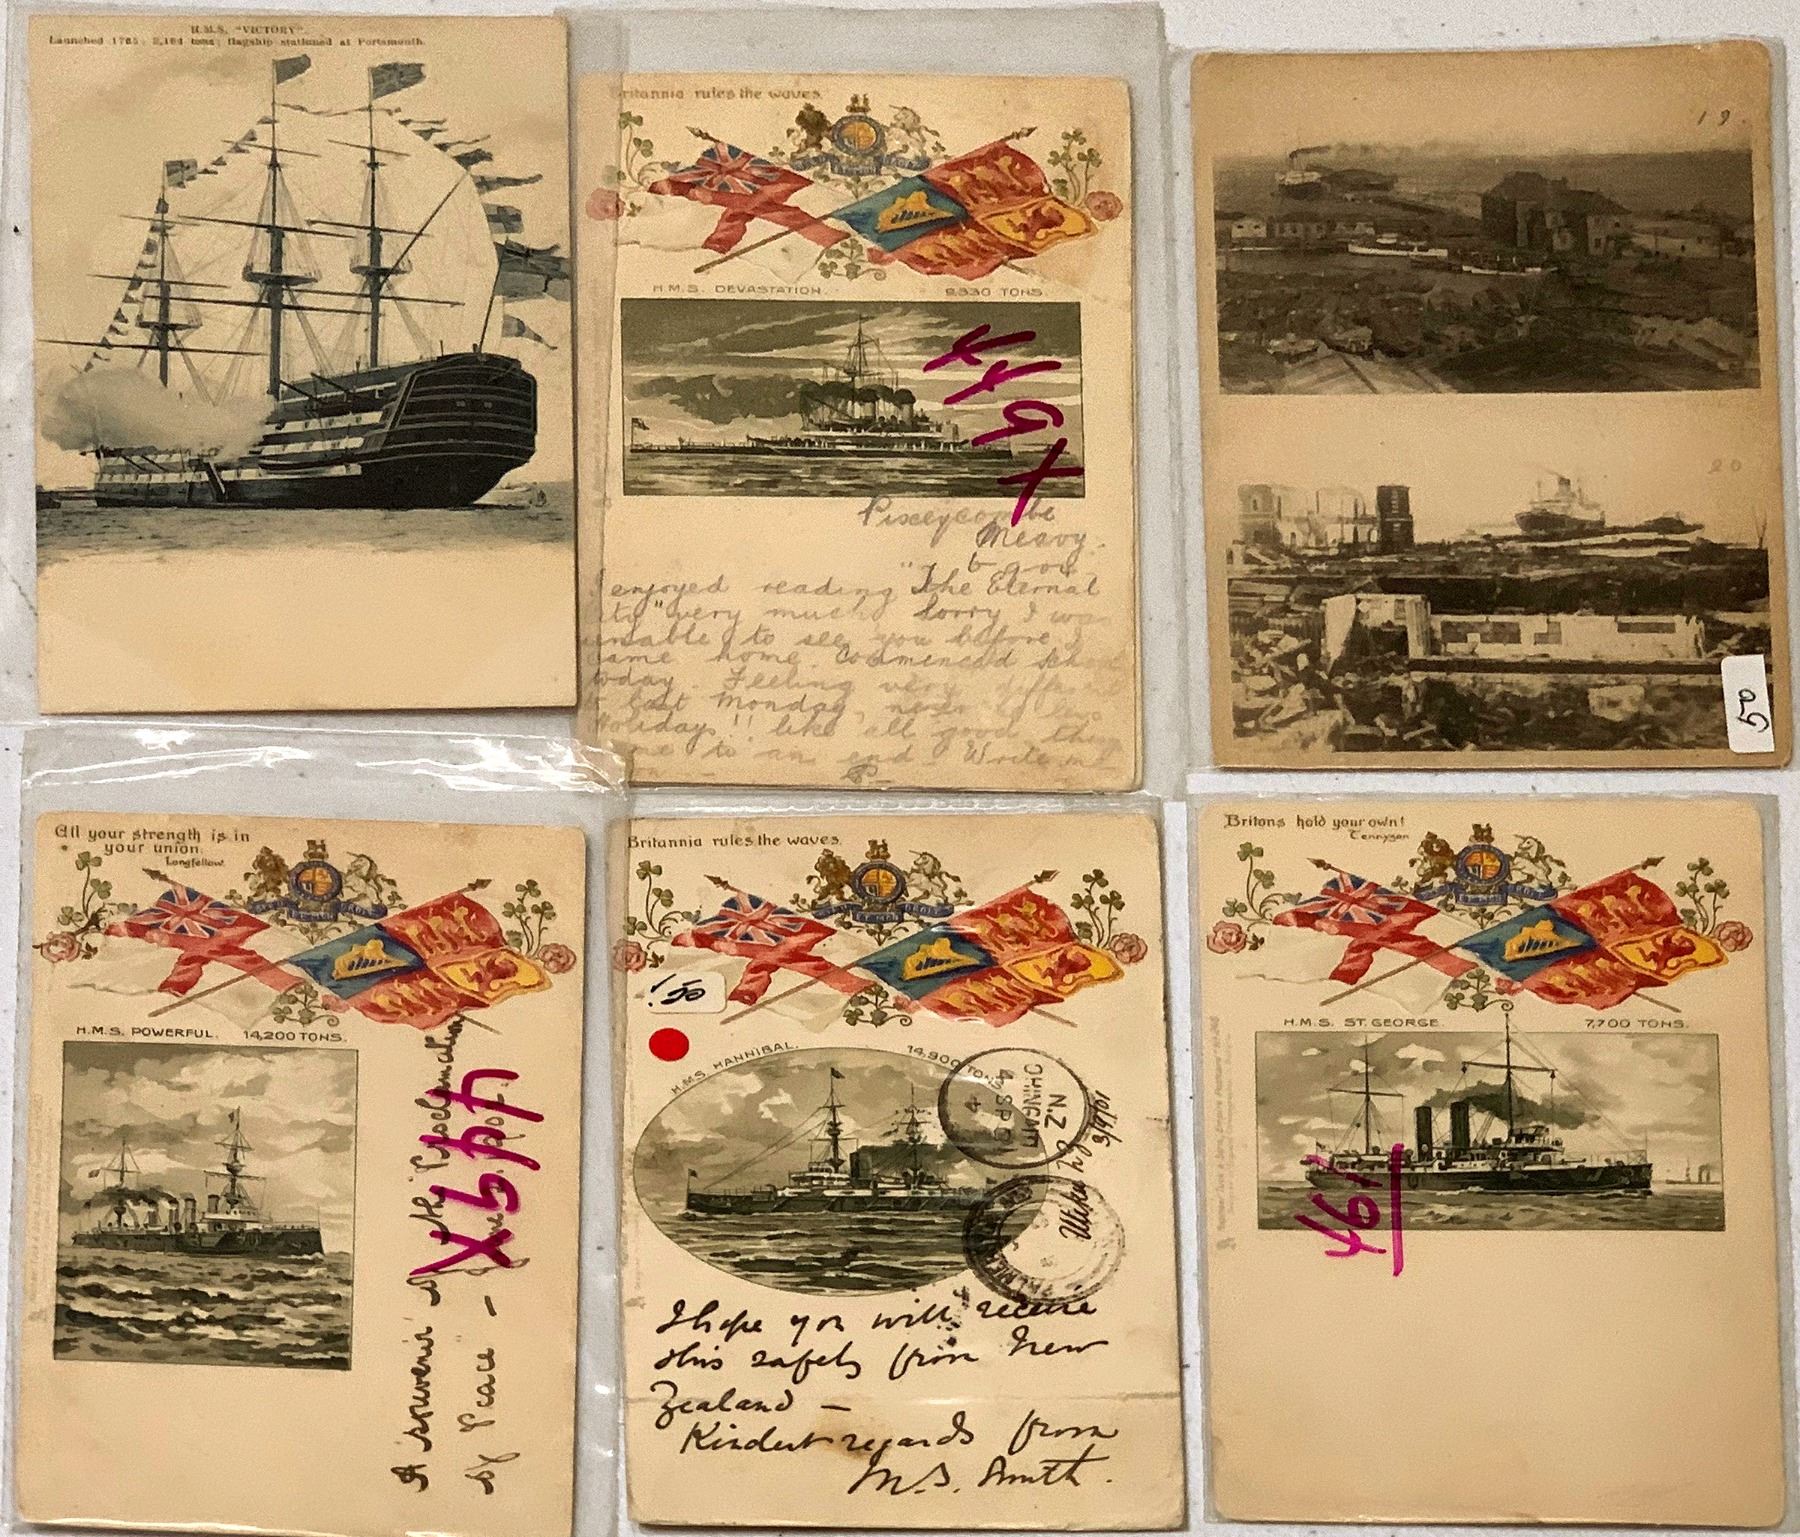 H.M.S. "VICTORY".
Launched 1765; 2,164 tons; flagship stationed at Portsmouth.
Britannia rules the waves.
H.M.S. DEVASTATION. 9,330 TONS.
449X
Meavy.
enjoyed reading "The Eternal
very much, sorry I was
unable to see you before I
came home. Commenced school
today. Feeling very different
last Monday,
Holidays!! like all good things
to an end. Write
19.
20
50
All your strength is in
your union.
Longfellow.
H.M.S. POWERFUL. 14,200 TONS.
A souvenir of the Proclamation
of Peace –
449X
Britannia rules the waves.
1.50
H.M.S. HANNIBAL. 14,900 TONS.
N.Z.
4 SP 01
3/9/01
I hope you will receive
this safely from New
Zealand –
Kindest regards from
M.S. Smith.
Britons hold your own!
Tennyson
H.M.S. ST. GEORGE. 7,700 TONS.
461